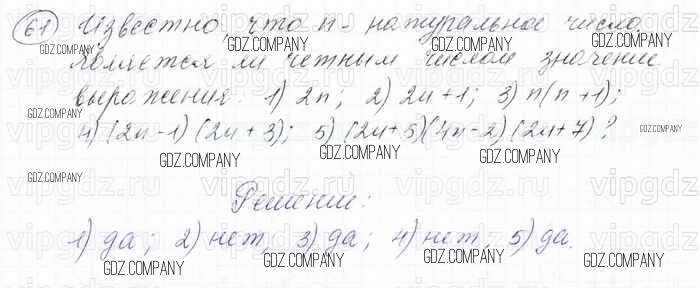 61 Известно, что n - натуральное число,
GDZ.COMPANY GDZ.COMPANY GDZ.COMPANY
является ли четным числом значение
выражения: 1) 2n; 2) 2n+1; 3) n(n+1);
GDZ.COMPANY GDZ.COMPANY GDZ.COMPANY
4) (2n-1)(2n+3); 5) (2n+5)(4n-2)(2n+7)?
GDZ.COMPANY GDZ.COMPANY GDZ.COMPANY
GDZ.COMPANY
Решение:
GDZ.COMPANY
1) да; 2) нет, 3) да; 4) нет, 5) да.
GDZ.COMPANY GDZ.COMPANY GDZ.COMPANY
vipgdz.ru